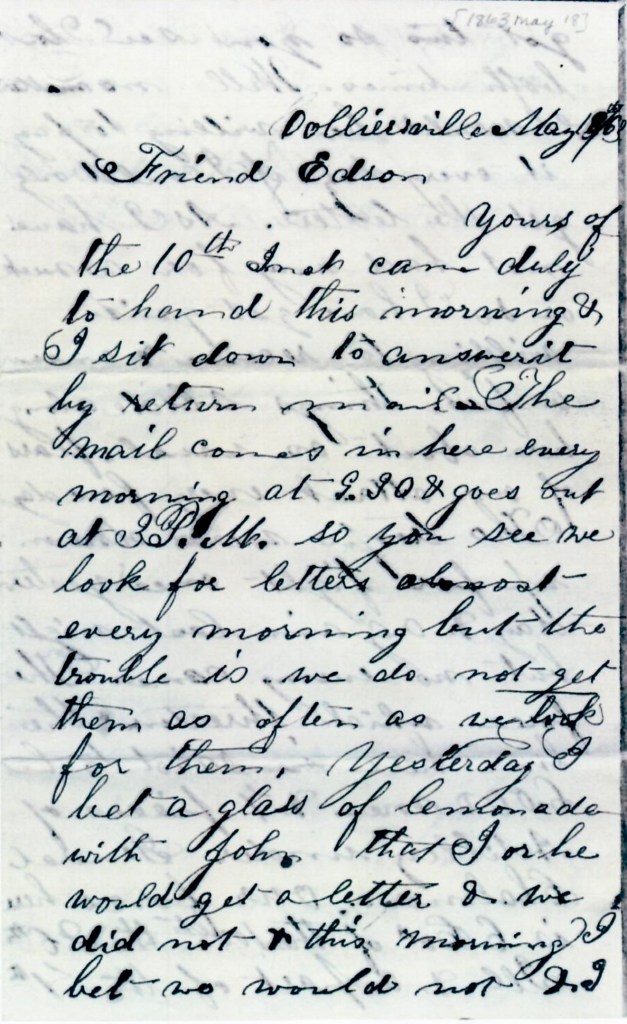 [1863, May 18]
Colliersville May 18th/63
Friend Edson
Yours of
the 10th Inst came duly
to hand this morning &
I sit down to answer it
by return mail. The
mail comes in here every
morning at 9.30 & goes out
at 3 P. M. so you see we
look for letters almost
every morning but the
trouble is we do not get
them as often as we look
for them. Yesterday I
bet a glass of lemonade
with John that I or he
would get a letter & we
did not & this morning I
bet we would not & I